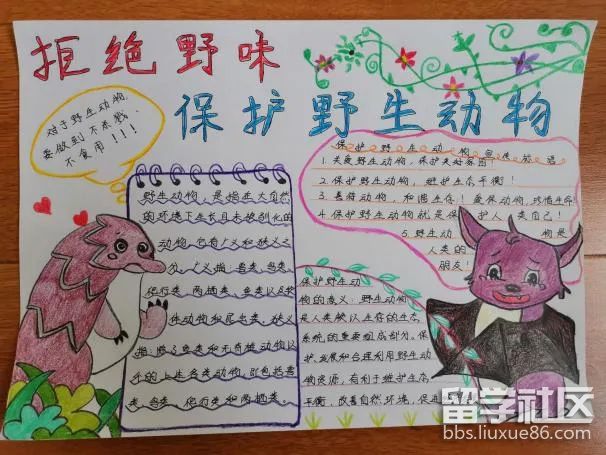 拒绝野味
保护野生动物
对于野生动物
要做到不杀戮
不食用!!!
野生动物,是指生大自然
的环境下生长且未被驯化的
动物,它有广义和狭义之
分,广义指:兽类、鸟类、
爬行类、两栖类、鱼类以及软
体动物和昆虫类。狭义
指:除了鱼类和无脊椎动物以
外的上生各类动物,即包括兽
类、鸟类、爬行类和两栖类。
保护野生动物宣传标语
1.关爱野生动物,保护美好家园!
2.保护野生动物,维护生态平衡!
3.善待动物,和谐生存!爱保动物,珍惜生命!
4.保护野生动物就是保护人类自己!
5.野生动物是
人类的
朋友!
保护野生动
物的意义:野生动物
是人类赖以生存的生态
系统的重要组成部分。保
护、发展和合理利用野生动
物资源,有利于维护生态
平衡,改善自然环境,促进
留学社区
bbs.liuxue86.com